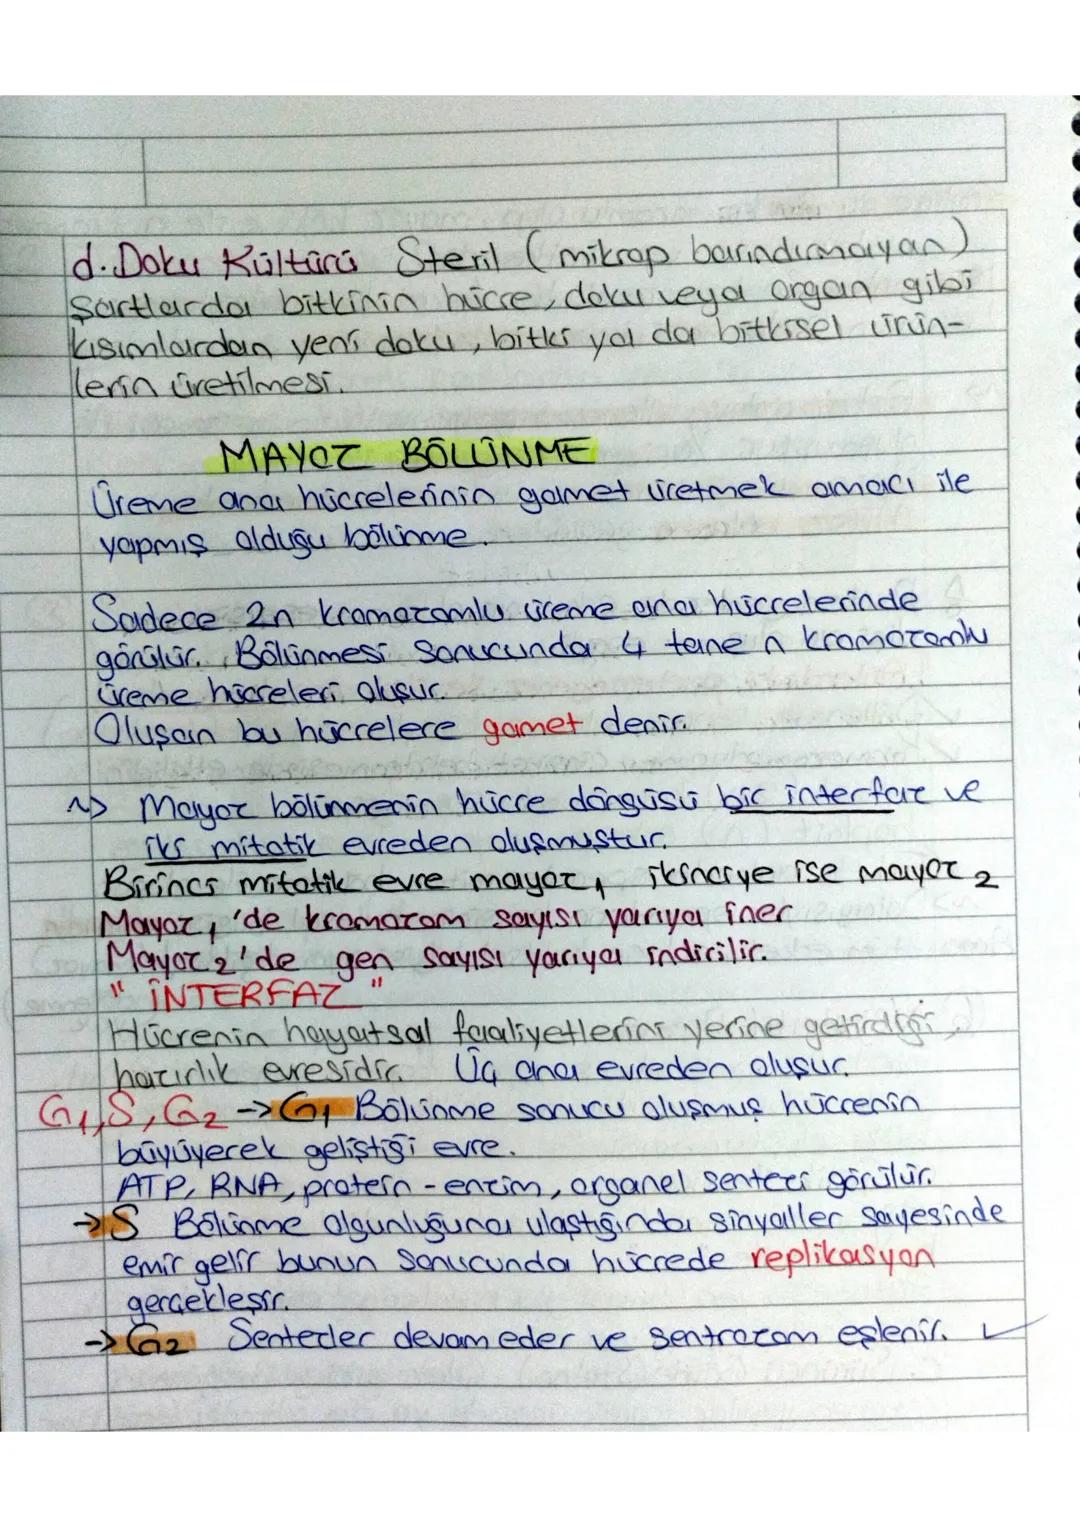 d. Doku Kültürü Steril (mikrop barındırmayan)
Şartlarda bitkinin hücre, doku veya organ gibi
kısımlardan yeni doku, bitki ya da bitkisel ürün-
lerin üretilmesi.
MAYOZ BÖLÜNME
Üreme ana hücrelerinin gamet üretmek amacı ile
yapmış olduğu bölünme.
Sadece 2n kromozomlu üreme ana hücrelerinde
görülür. Bölünmesi sonucunda 4 tane n kromozomlu
üreme hücreleri oluşur.
Oluşan bu hücrelere gamet denir.
~> Mayoz bölünmenin hücre döngüsü bir interfaz ve
iki mitotik evreden oluşmuştur.
Birinci mitotik evre mayoz 1 ikinciye ise mayoz 2
Mayoz 1'de kromozom sayısı yarıya iner
Mayoz 2'de gen sayısı yarıya indirilir.
"İNTERFAZ"
Hücrenin hayatsal faaliyetlerini yerine getirdiği,
hazırlık evresidir. Üç ana evreden oluşur.
G1, S, G2 -> G1 Bölünme sonucu oluşmuş hücrenin
büyüyerek geliştiği evre.
ATP, RNA, protein - enzim, organel sentezi görülür.
-> S Bölünme olgunluğuna ulaştığında sinyaller sayesinde
emir gelir bunun sonucunda hücrede replikasyon
gerçekleşir.
-> G2 Sentezler devam eder ve sentrozom eşlenir.